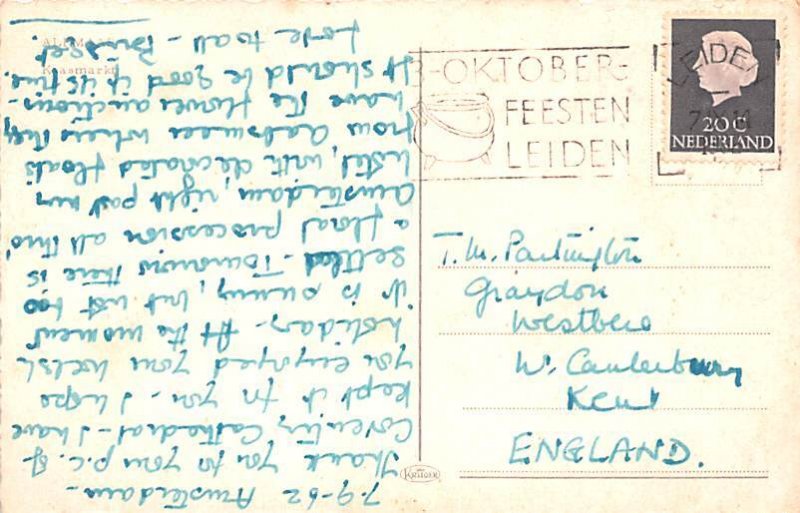 7-9-62 Amsterdam -
Thank you for your p.c. of
Coventry Cathedral - I have
kept it for you - I hope
you enjoyed your Welsh
holiday - At the moment
it is sunny, but not too
settled - Tomorrow there is
a floral procession all thro'
Amsterdam, right past my
hotel, with decorated floats
from Aalsmeer where they
have the flower auctions -
It should be good if it's fine.
Love to all - Bridget.
ALKMAAR
Kaasmarkt
3-OKTOBER-
FEESTEN
LEIDEN
LEIDEN
20 C
NEDERLAND
T.M. Partington
Graydon
Westbere
Nr. Canterbury
Kent
ENGLAND.
KRÜGER